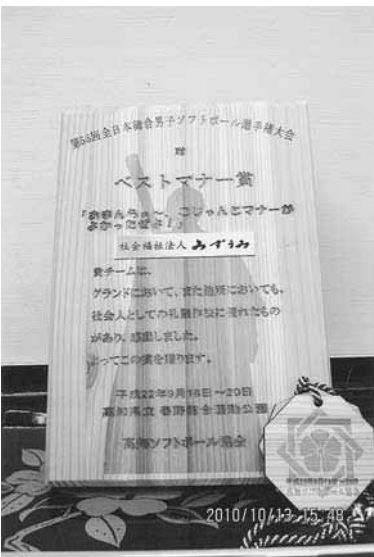 第56回全日本総合男子ソフトボール選手権大会
ベストマナー賞
「おまんらぁ～、こじゃんとマナーが
よかったぜよ！」
社会福祉法人 みずうみ
貴チームは、
グランドにおいて、また他所においても、
社会人としての礼儀作法に優れたもの
があり、感動しました。
よってこの賞を贈ります。
平成22年9月18日～20日
高知県立 春野総合運動公園
高知ソフトボール協会
2010/10/13 15:48